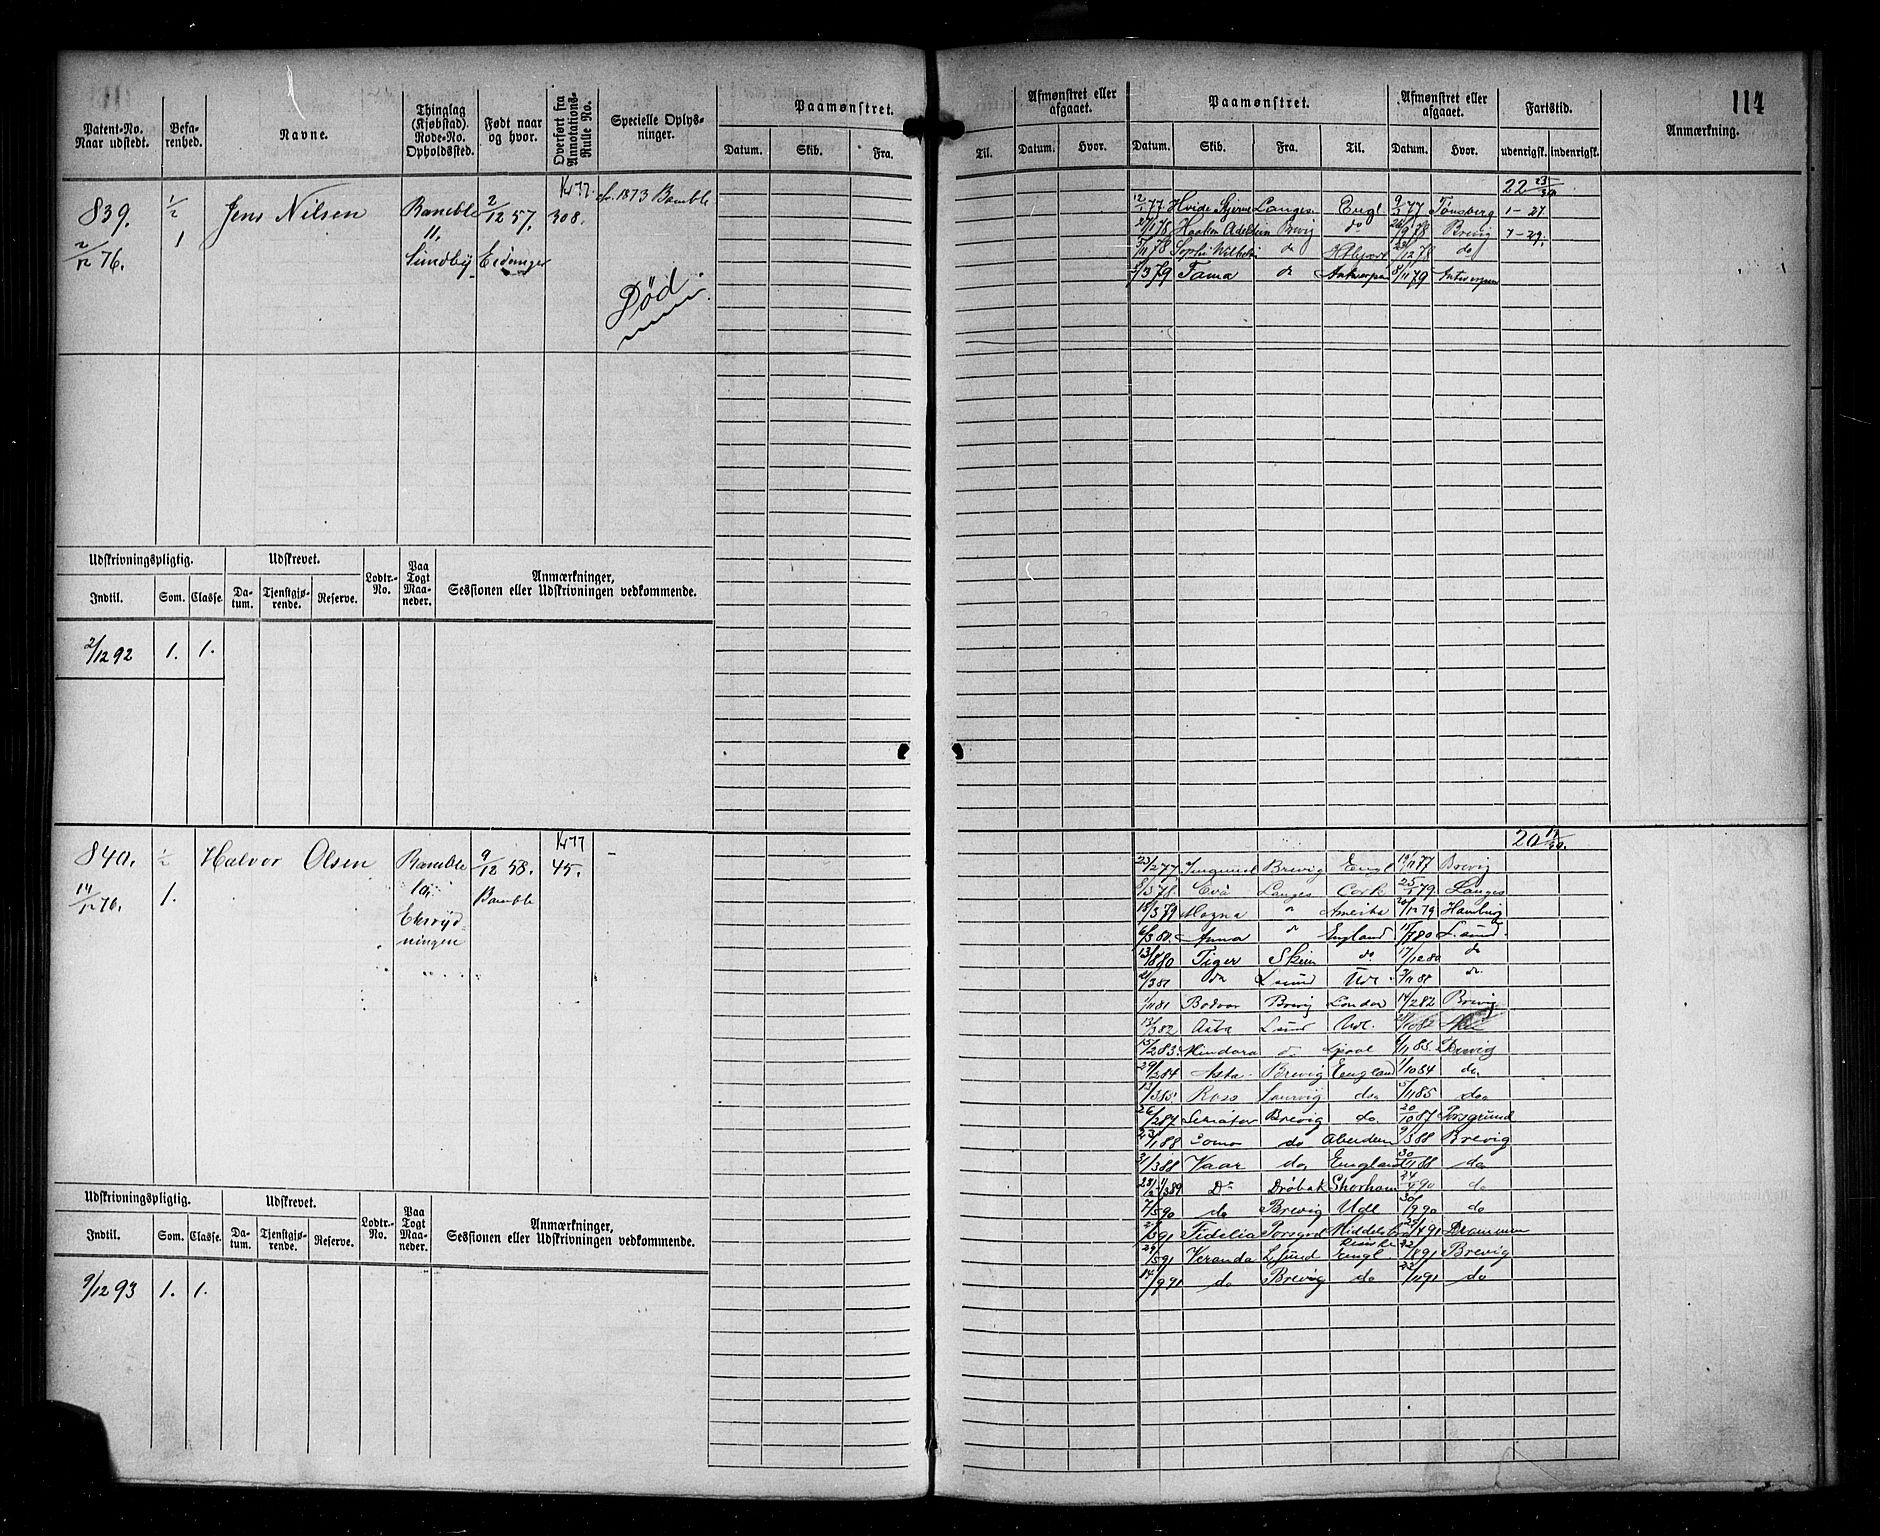 114
Patent-No. Naar udstedt.
Befarenhed.
Navne.
Thinglag (Kjøbstad). Rode-No. Opholdssted.
Født naar og hvor.
Overført fra Annotations-Rulle No.
Specielle Oplysninger.
Paamønstret.
Datum. Skib. Fra.
Til.
Afmønstret eller afgaaet.
Datum. Hvor.
Paamønstret.
Datum. Skib. Fra. Til.
Afmønstret eller afgaaet.
Datum. Hvor.
Fartstid.
udenrigsk. indenrigsk.
Anmærkning.
839. 1/2 Jens Nilsen Bamble 2/12 57. 308.
2/12 76. 1 11. Eidanger
Sundby
1873 Bamble
Død
22 23/30
12/1 77 Hvide Stjerne Langes Engl 9/3 77 Tønsberg 1-27
Haakon Adelsten Brevig do Brevig 7-29.
5/11 78 Sophi Wilhelm do 12 78 do
3 79 Fama do Antwerpen 8/11 79 Antwerpen
Udskrivningspligtig. Udskrevet. Lodtr.-No. Paa Togt Maaneder. Anmærkninger, Sessionen eller Udskrivningen vedkommende.
Indtil. Som. Classe. Datum. Tjenstgjørende. Reserve.
2/12 92 1. 1.
840. 1/2 Halvor Olsen Bamble 9/12 58. 45.
14/12 76. 1. 10. Bamble
Eksrydningen
20 /30.
23/2 77 Brevig Engl 77 Brevig
8/3 78 Eva Langes Cork 25/1 79. Langes
18/3 79 Magna do Amerika 20/12 79 Hamburg
6/3 80. Anna do England 80 Lsund
13/8 80 Tiger Skien do 17/12 80 do
3 81 do Lsund Udl 11 81 do
11 81 Bodvar Brevig London 14/2 82 Brevig
13/3 82 Asta Lsund Udl.
15/2 83. Mindora do Lpool 6/11 83. Brevig
29/2 84 Asta Brevig England 1/10 84 do
13/3 85 Ross Laurvig do 5/11 85 do
26/2 87 Senator Brevig do 20/10 87 Porsgrund
23/1 88 Como do Aberdeen 9/3 88 Brevig
31/3 88 Vaar do England 30/11 88 do
89 Do Drøbak Shorham 24/4 90 do
7/5 90 do Brevig Udl 30/9 90 do
2/3 91 Fidelia Porsgrd Middelsbro 4 91 Drammen
29/5 91 Veranda Lsund Engl 22/8 91 Brevig
14/9 91 do Brevig do 22/11 91 do
Udskrivningspligtig. Udskrevet. Lodtr.-No. Paa Togt Maaneder. Anmærkninger, Sessionen eller Udskrivningen vedkommende.
Indtil. Som. Classe. Datum. Tjenstgjørende. Reserve.
9/12 93 1. 1.